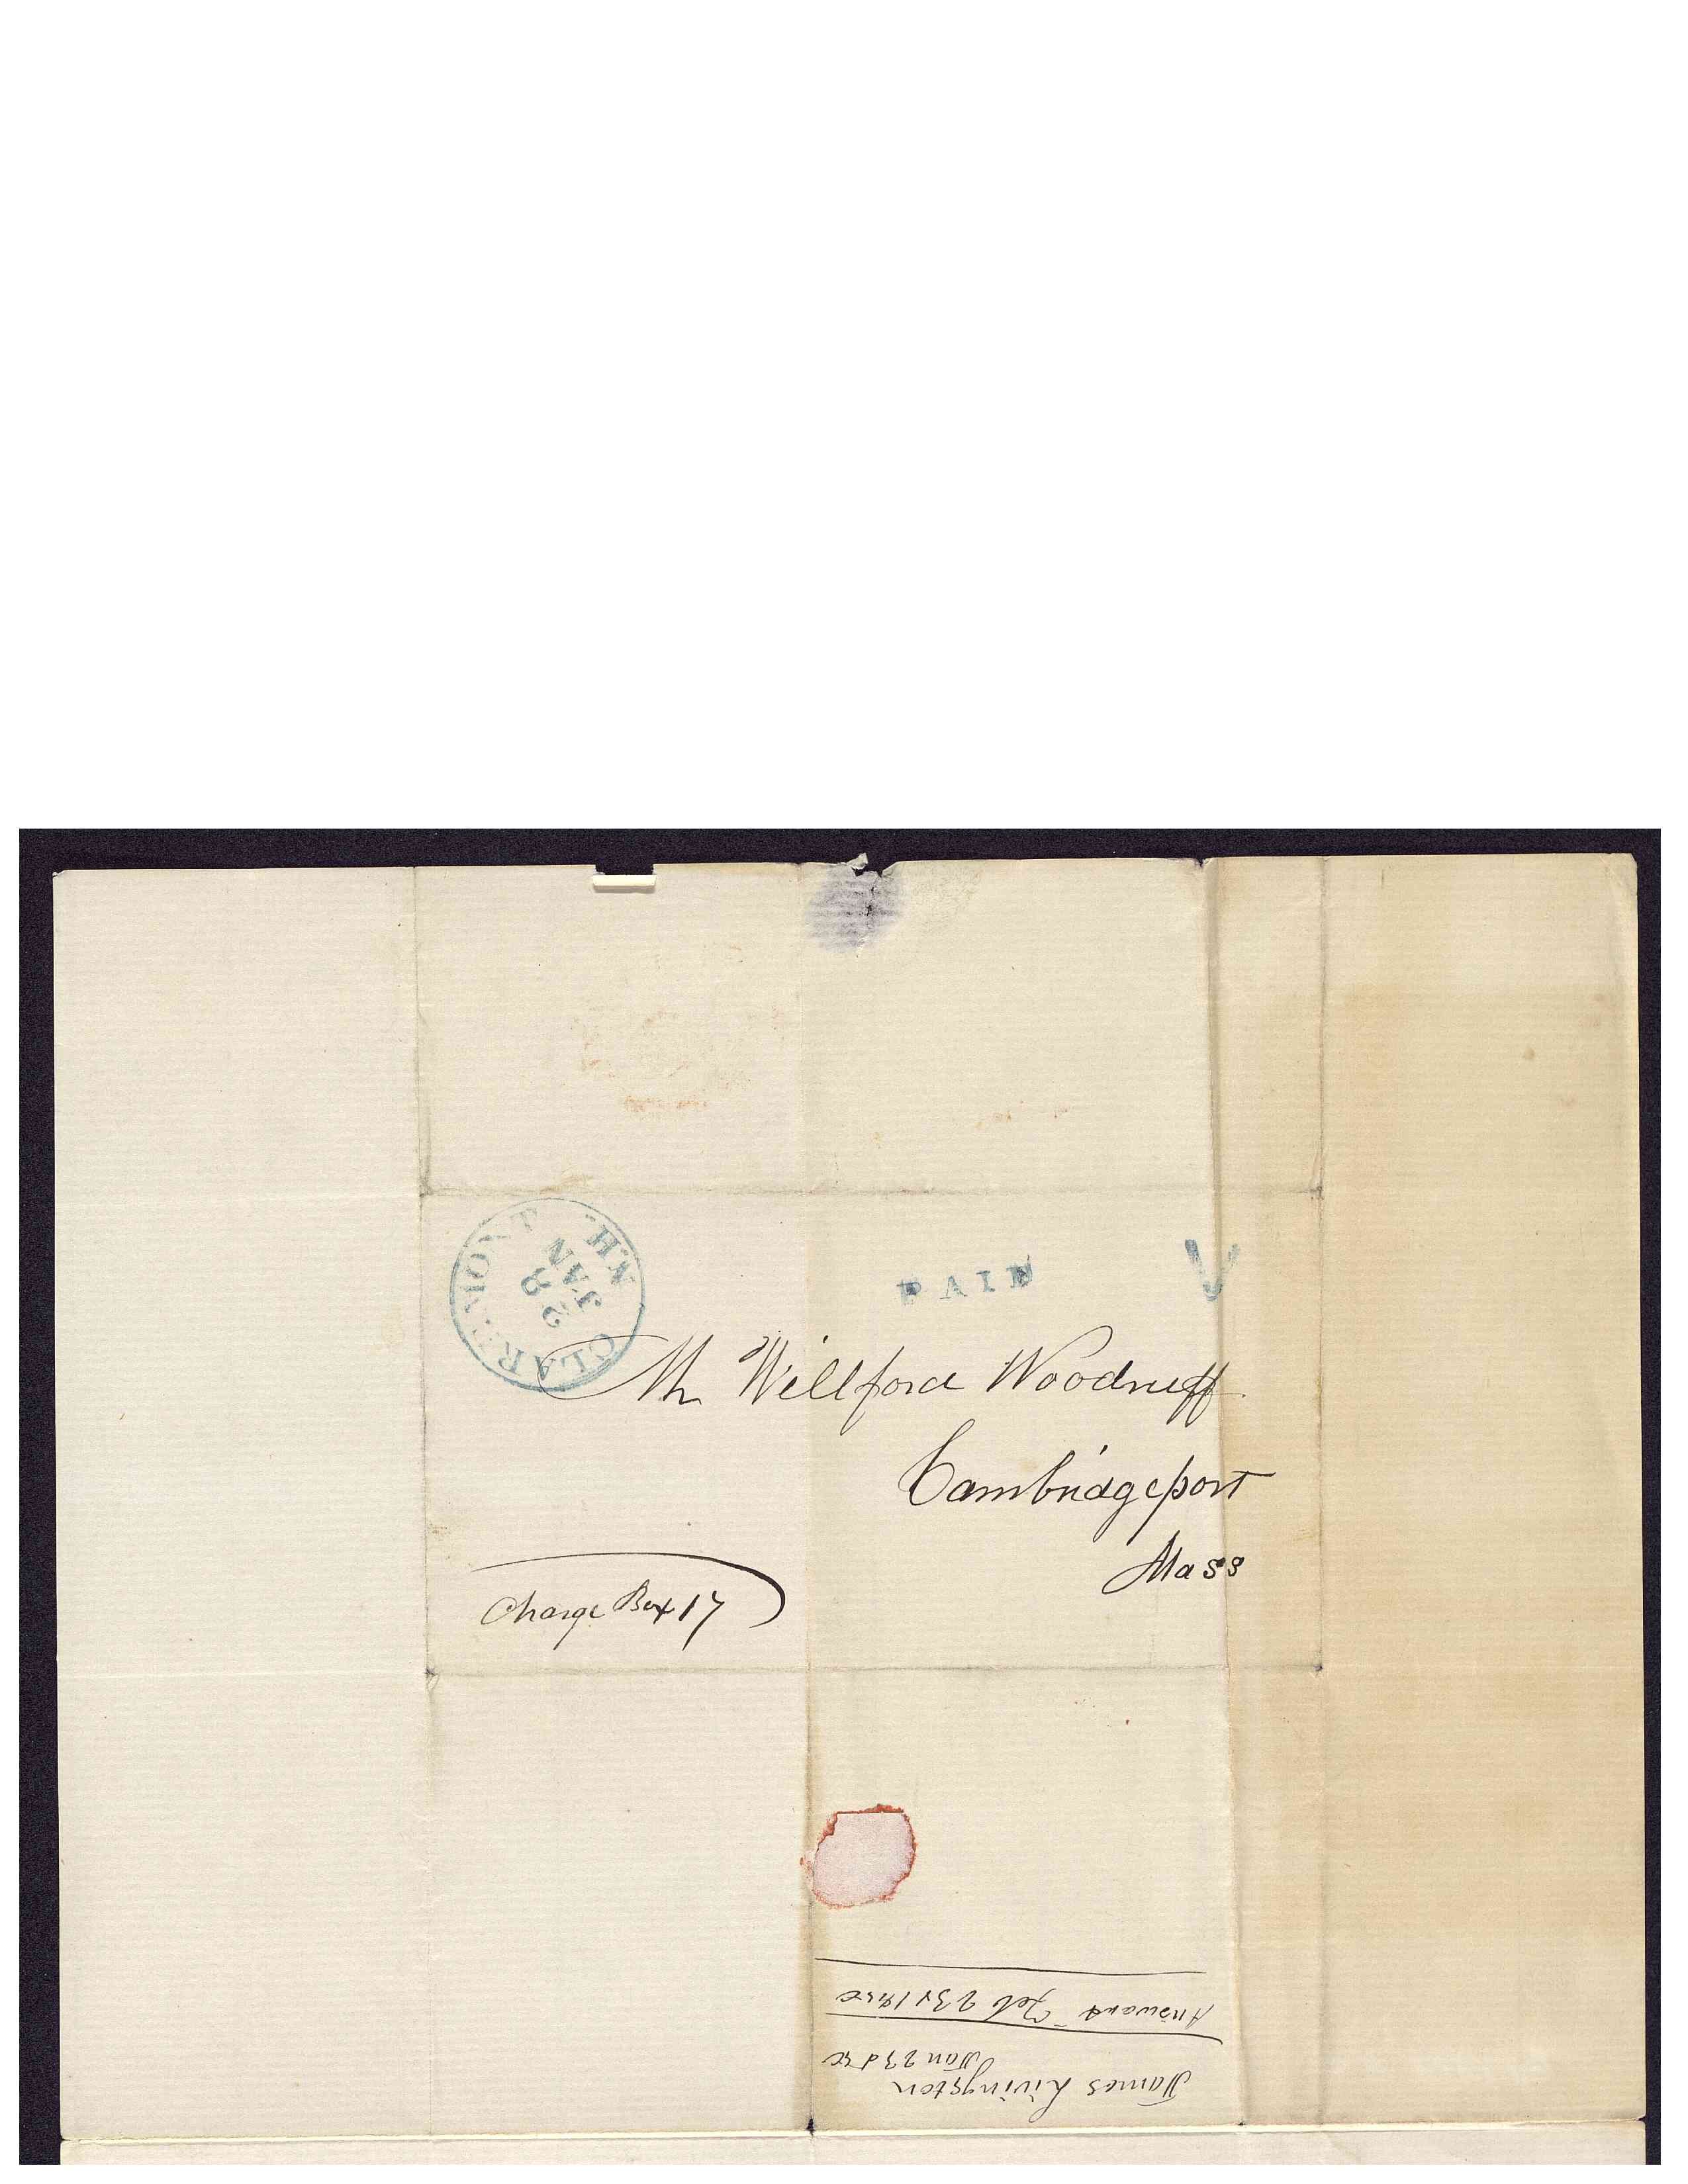 CLAREMONT N.H.
JAN
28
PAID
V
Mr Willford Woodruff
Cambridgeport
Mass
Charge Box 17
James Livingston
Jan 23d
Answard Feb 23d